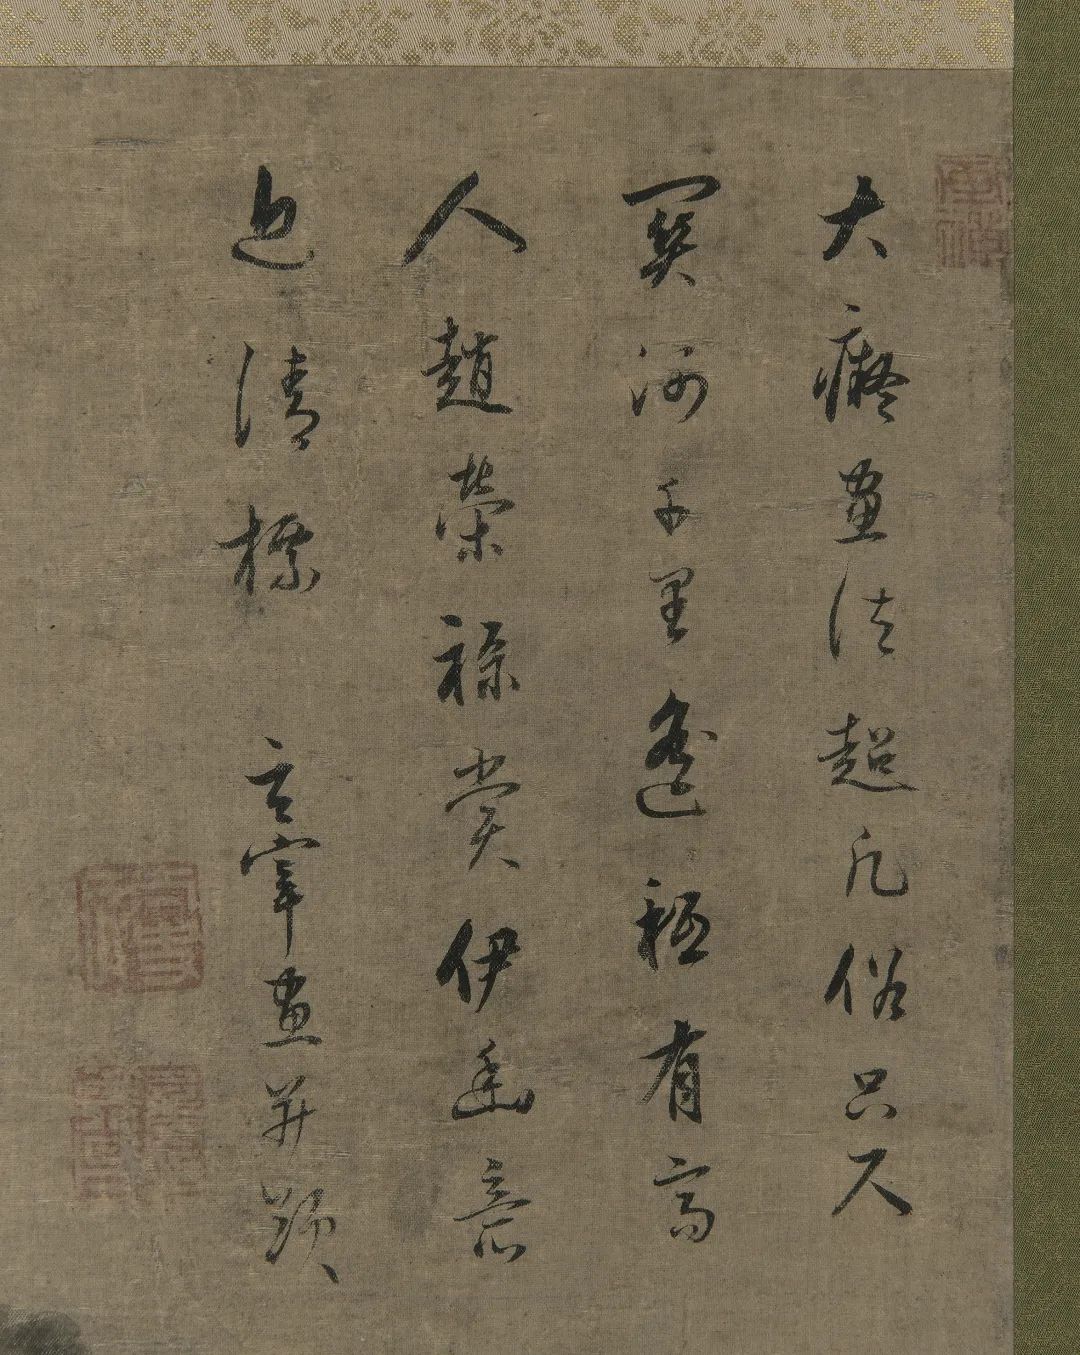 大癡畫法超凡俗只尺
關河千里遙秪有高
人趙榮祿賞伊幽意
近清標 玄宰畫并題